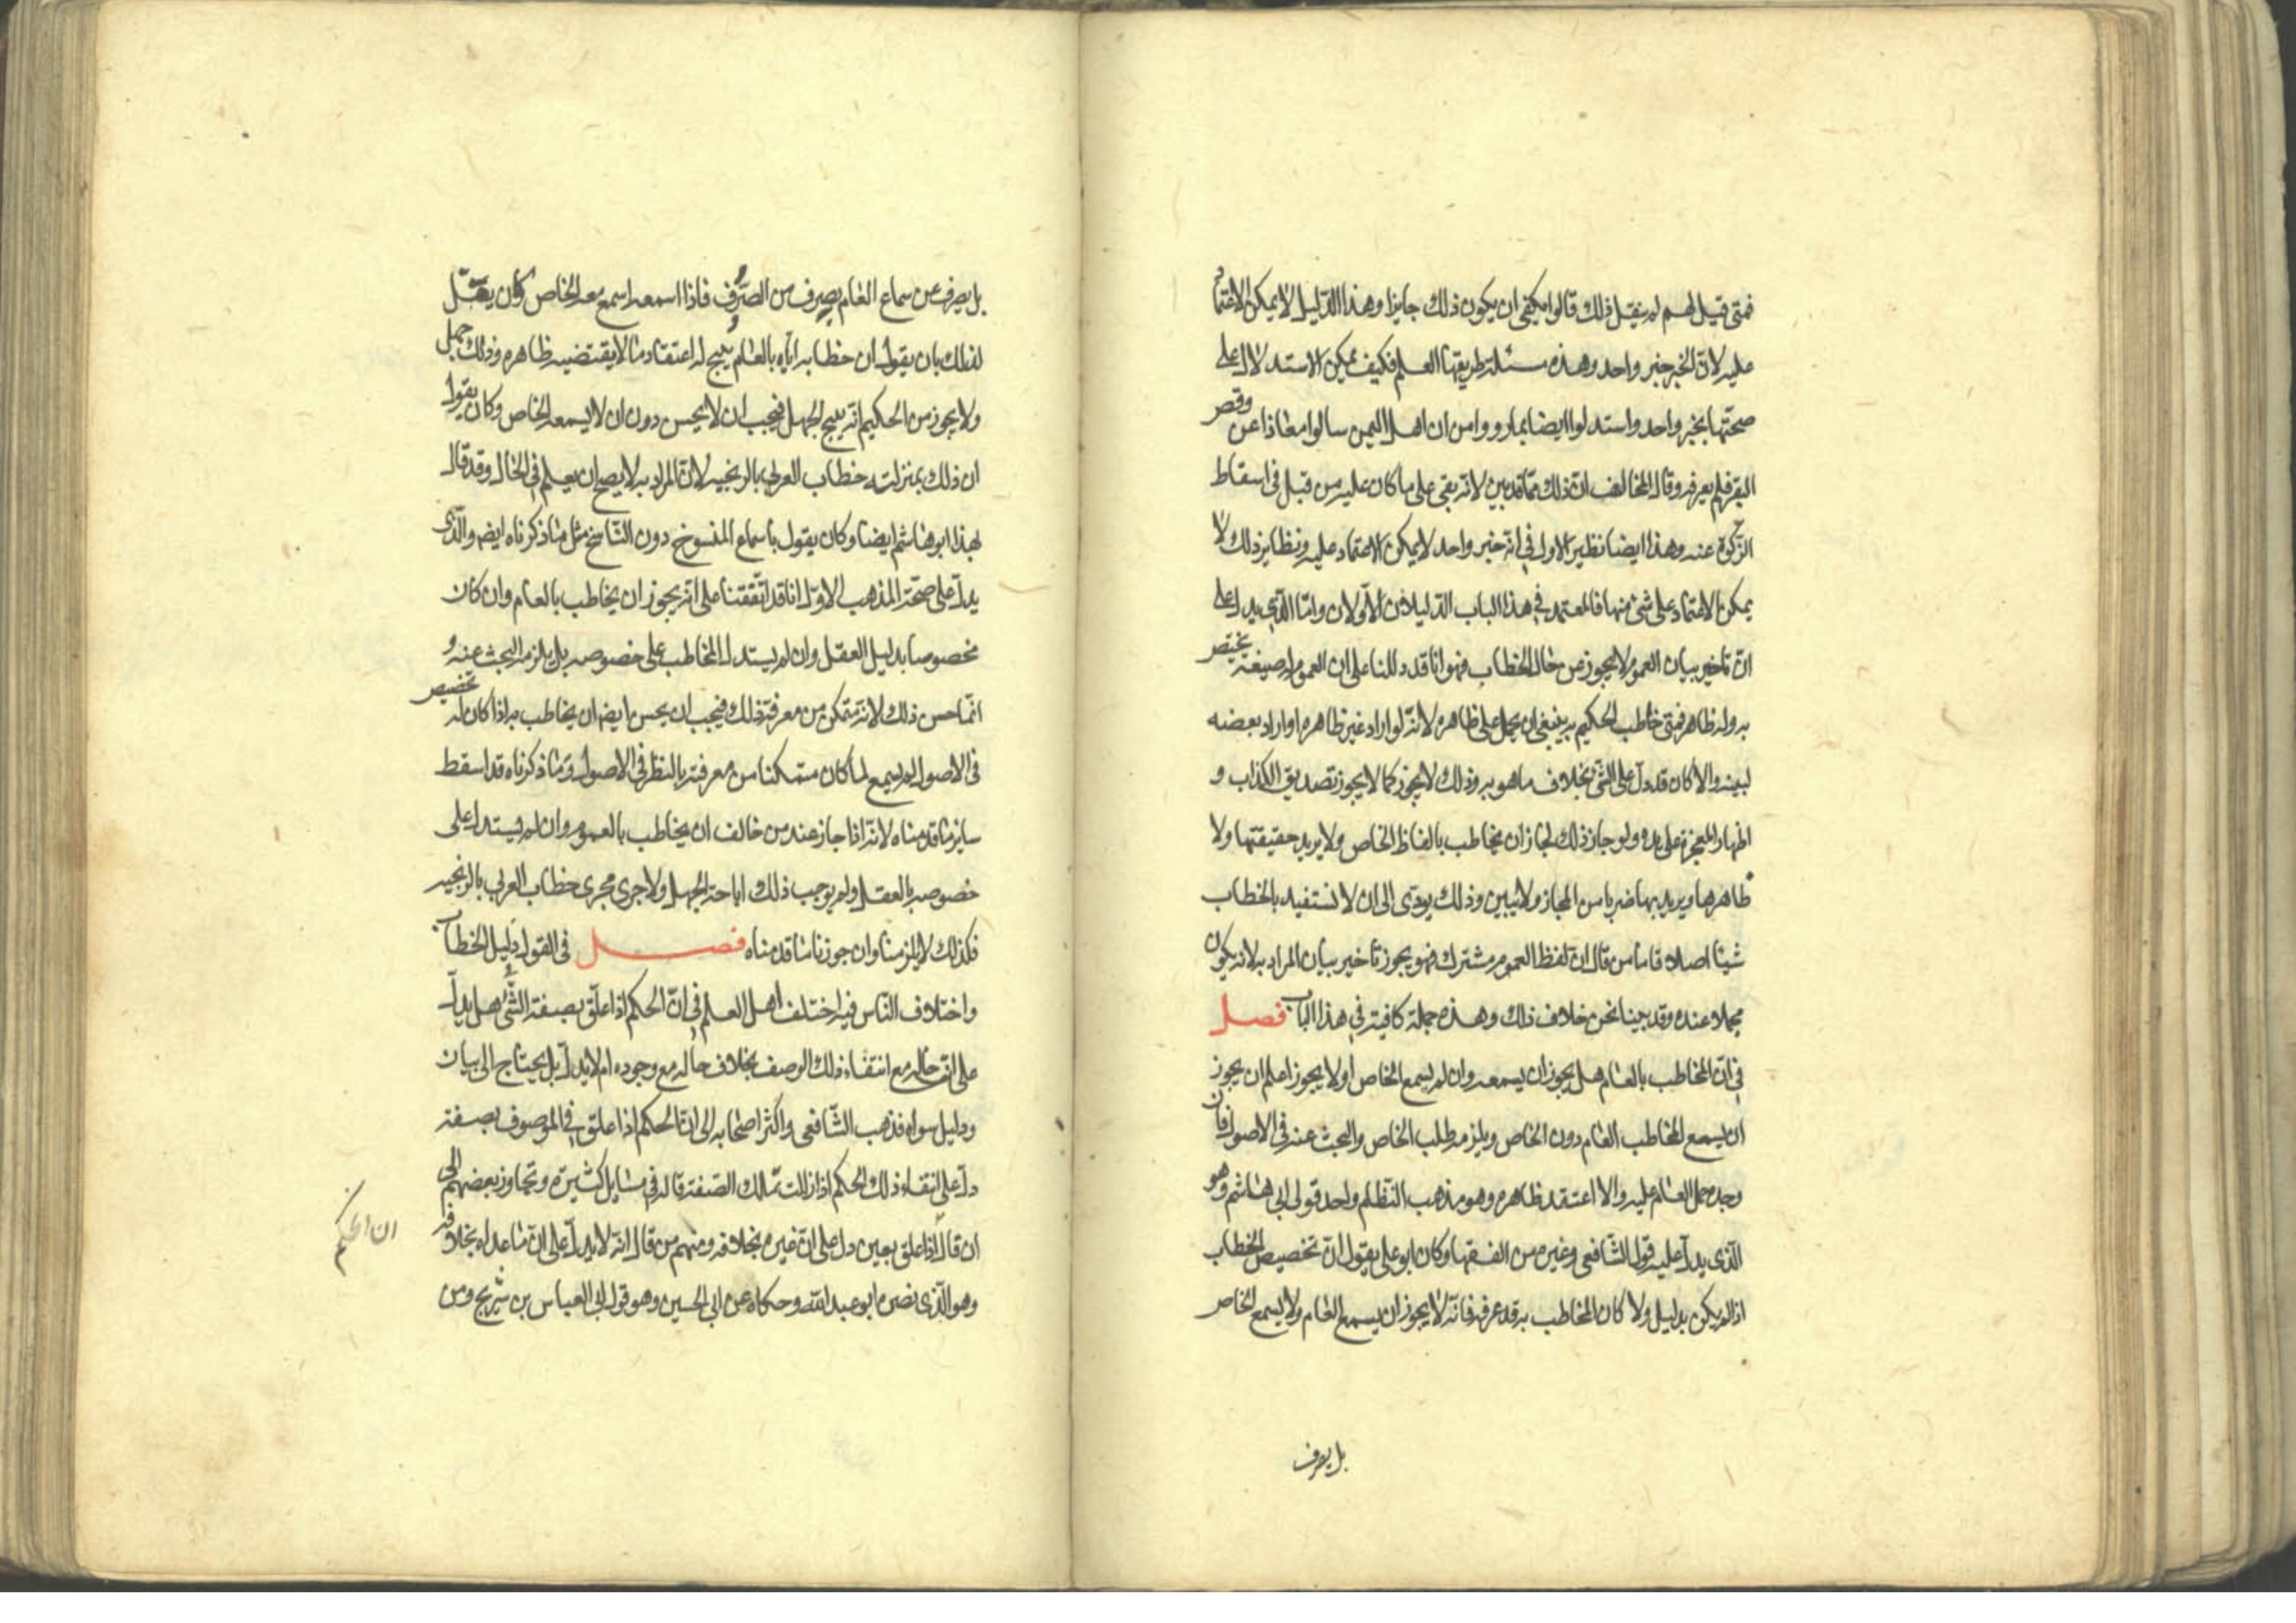 فمتى قيل لهم لم ينقل ذلك قالوا يكفى ان يكون ذلك جايزا وهذا الدّليل لا يمكن الاعتماد
عليه لانّ الخبر خبر واحد وهذه مسئلة طريقها العلم فكيف يمكن الاستدلال على
صحّتها بخبر واحد واستدلوا ايضا بما روو امن ان اهل اليمن سالوا معاذا عن وقص
البقر فلم يعرفه وقال المخالف انّ ذلك ممّا قد بين لانه بقى على ما كان عليه من قبل فى اسقاط
الزّكوة عنه وهذا ايضا نظير الاول فى انه خبر واحد لا يمكن الاعتماد عليه ونظاير ذلك لا
يمكن الاعتماد على شئ منها فالمعتمد فى هذا الباب الدّليلان الاّولان وامّا الّذى يدل على
انّ تاخير بيان العموم لا يجوز عن حال الخطاب فهو انا قد دللنا على ان العموم له صيغة يختص
به وله ظاهر فمتى خاطب الحكيم به ينبغى ان يحمل على ظاهره لانّه لو اراد غير ظاهره او اراد بعضه
لبينه والا كان قد دلّ على الشّئ بخلاف ما هو به وذلك لا يجوز كما لا يجوز تصديق الكذاب و
اظهار المعجزة على يده ولو جاز ذلك لجاز ان يخاطب بالفاظ الخاص ولا يريد حقيقتها ولا
ظاهرها ويريد بها ضربا من المجاز ولا يبين وذلك يودّى الى ان لا نستفيد بالخطاب
شيئا اصلا فامّا من قال ان لفظ العموم مشترك فهو يجوز تاخير بيان المراد به لانه يكون
مجملا عنده وقد بينا نحن خلاف ذلك وهذه جملة كافية فى هذا الباب فصل
فى انّ المخاطب بالعام هل يجوز ان يسمعه وان لم يسمع الخاص او لا يجوز اعلم ان يجوز
ان يسمع المخاطب العام دون الخاص ويلزمه طلب الخاص والبحث عنه فى الاصول فان
وجده حمل العام عليه والا اعتقد ظاهره وهو مذهب النّظام واحد قولى ابى هاشم وهو
الّذى يدلّ عليه قول الشّافعى وغيره من الفقها وكان ابو على يقول انّ تخصيص الخطاب
اذا لم يكن بدليل ولا كان المخاطب به قد عرفه فانّه لا يجوز ان يسمع العام ولا يسمع الخاص
بل يصرف
بل يصرف عن سماع العام بصرف من الصرف فاذا اسمعه اسمع معه الخاص وكان يعتل
لذلك بان يقول ان خطابه ايّاه بالعام يبيح له اعتقاد ما لا يقتضيه ظاهره وذلك جهل
ولا يجوز من الحكيم انّه يبيح الجهل فيجب ان لا يحسن دون ان لا يسمعه الخاص وكان يقول
ان ذلك بمنزلة خطاب العربى بالزنجيه لانّ المراد به لا يصح ان يعلم فى الحال وقد قال
بهذا ابو هاشم ايضا وكان يقول باسماع المنسوخ دون النّاسخ مثل ما ذكرناه ايضا والّذى
يدلّ على صحّة المذهب الاوّل انا قد اتّفقنا على انّه يجوز ان يخاطب بالعام وان كان
مخصوصا بدليل العقل وان لم يستدل المخاطب على خصوصه بل يلزمه البحث عنه و
انّما حسن ذلك لانّه متمكن من معرفة ذلك فيجب ان يحسن ايضا ان يخاطب به اذا كان له تخصيص
فى الاصول لم يسمع لما كان متمكنا من معرفته بالنظر فى الاصول وما ذكرناه قد اسقط
ساير ما قدمناه لانّه اذا جاز عند من خالف ان يخاطب بالعموم وان لم يستدل على
خصوصه بالعقل ولم يوجب ذلك اباحة الجهل ولا جرى مجرى خطاب العربى بالزنجيه
فكذلك لا يلزمنا وان جوزنا ما قدمناه فصل فى القول دليل الخطاب
واختلاف النّاس فيه اختلف اهل العلم فى انّ الحكم اذا علّق بصفة الشّئ هل يدلّ
على انّ حاله مع انتفاء ذلك الوصف بخلاف حاله مع وجوده ام لا يدلّ بل يحتاج الى بيان
ودليل سواه فذهب الشّافعى واكثر اصحابه الى انّ الحكم اذا علّق فى الموصوف بصفة
دلّ على انتفاء ذلك الحكم اذا زالت تلك الصّفة قاله فى مسايل كثيرة وتجاوز بعضهم الى
ان قال اذا علق بعين دل على انّ غيره بخلافه ومنهم من قال انّه لا يدلّ على انّ ما عداه بخلافه
ان الحكم
وهو الّذى نصره ابو عبد الله وحكاه عن ابى الحسين وهو قول ابى العباس بن شريج ومن